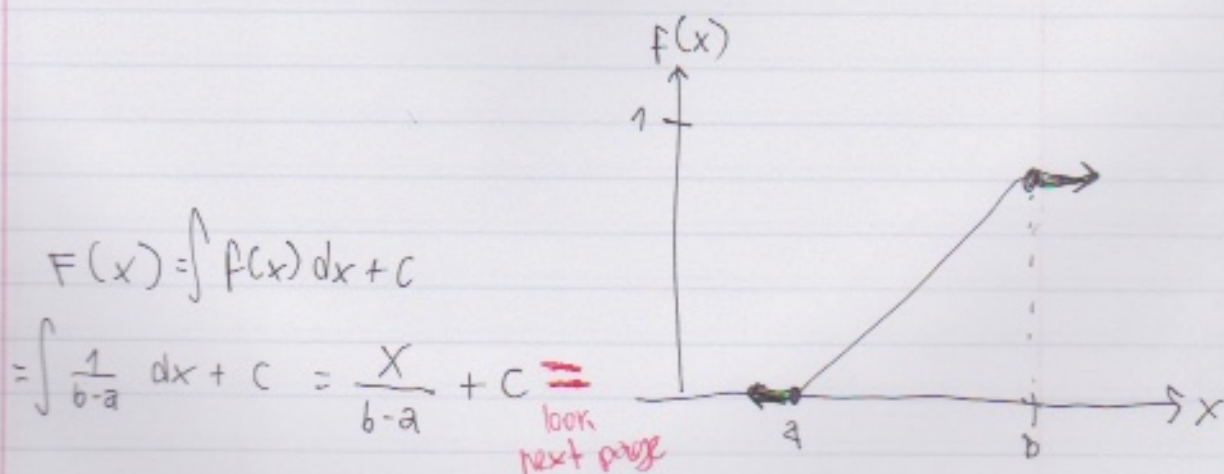 f(x)
1
F(x) = ∫ f(x) dx + C
= ∫ 1/(b-a) dx + C = x/(b-a) + C =
look
next page
a
b
x